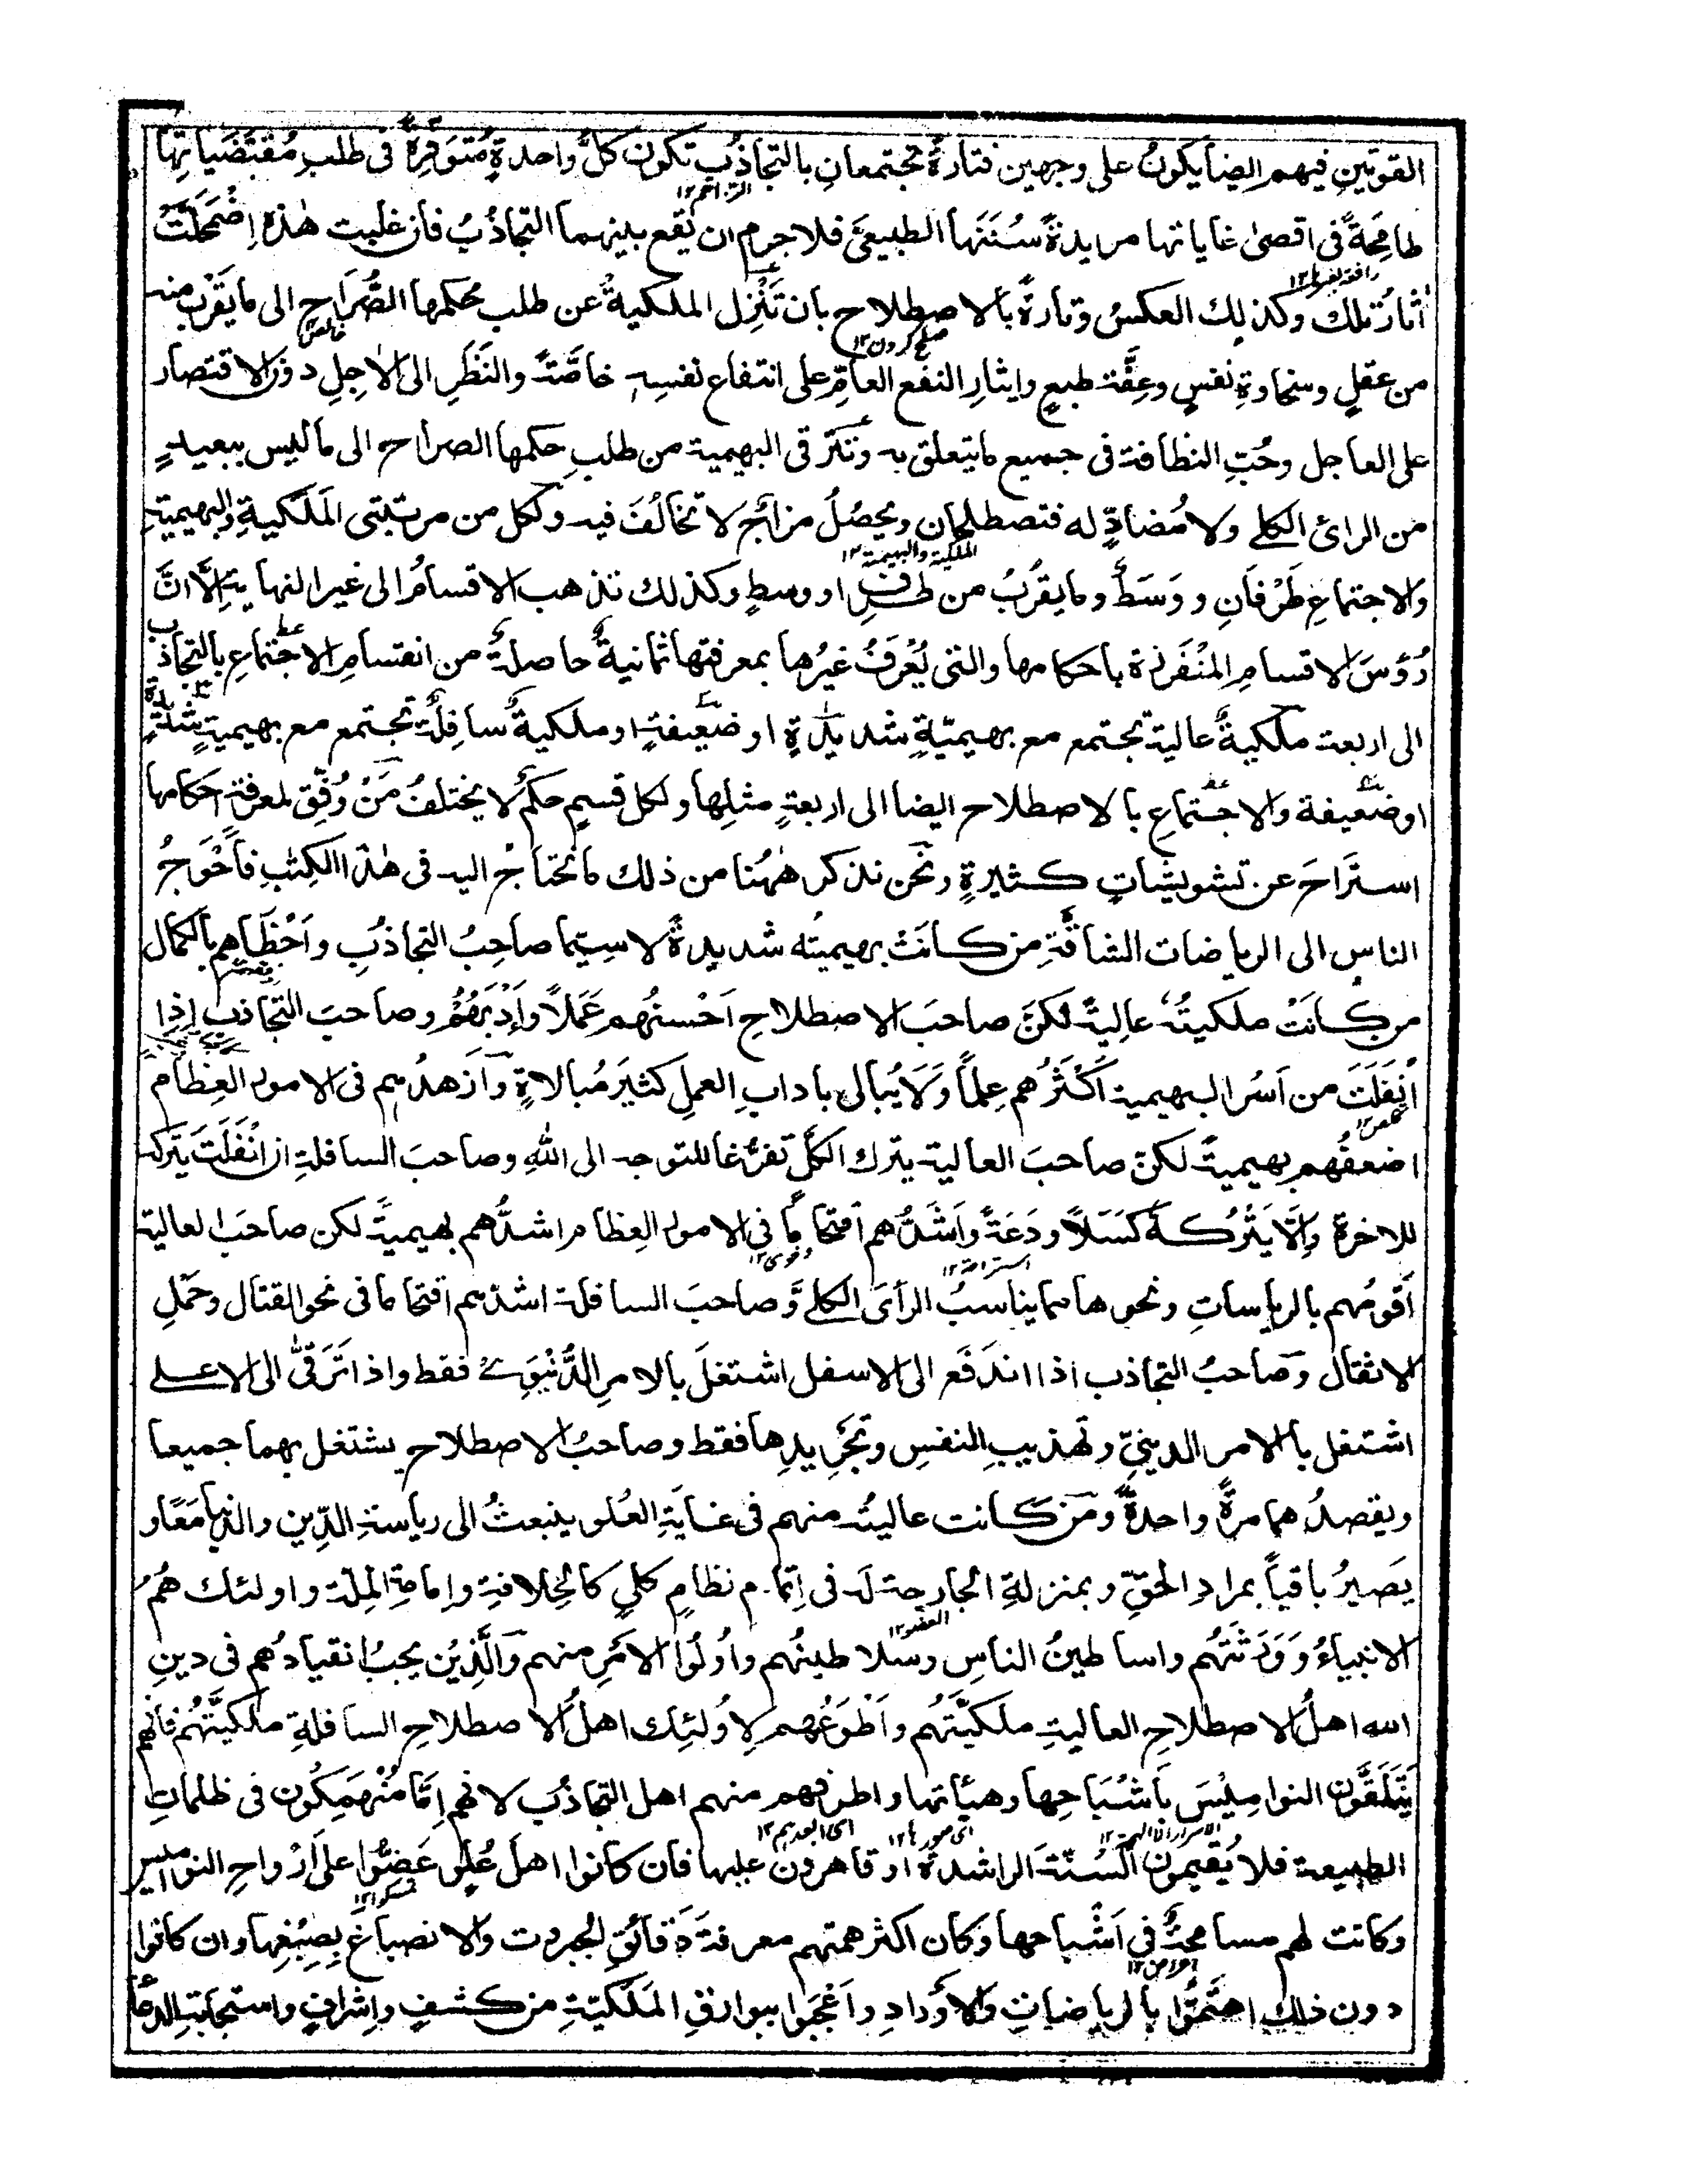 القوتين فيهم ايضا يكونُ على وجهين فتارةً تجتمعانِ بالتجاذُب تكون كلُّ واحدةٍ مُتوَفِّرةً فى طلبِ مُقتضَياتِها
طامِحةً فى اقصىٰ غاياتها مريدةً سُنَنَها الطبيعىَّ فلا جرم ان يقع بينهما التجاذُبُ فان غلبت هٰذه اِضْمَحَلَّتْ
اٰثارُ تلك وكذلِك العكسُ وتارةً بالاصطلاح بان تَنْزِل الملكيةُ عن طلب حكمها الصُّرَاحِ الى ما يَقْرَبُ منه
من عقلٍ وسخاوةِ نفسٍ وعِفَّة طبعٍ وايثارِ النفع العامِّ على انتفاع نفسِهٖ خاصَّةً والنَّظَرِ الى الاٰجِلِ دون الاقتصار
على العاجل وحُبِّ النظافة فى جميع ما يتعلق به وتَتَرقى البهيمية من طلبِ حكمها الصراح الى ما ليس ببعيدٍ
من الرائ الكلے ولا مُضادٍّ له فتصطلحان ويحصُلُ مزاجٌ لا تخالُفَ فيه ولكل من مرتبتى المَلَكيةِ والبهيميةِ
والاجتماعِ طَرْفانِ ووَسَطٌ وما يقرُبُ من طرفٍ او وسطٍ وكذلك تذهب الاقسامُ الى غير النهايةِ الَّا انَّ
رُؤسَ الاقسامِ المنْفَرزة باحكامها والتى يُعْرَفُ غيرُها بمعرفتها ثمانيةٌ حاصلةٌ من انقسامِ الاجتماعِ بالتجاذب
الى اربعة ملكيةٌ عالية تجتمع مع بهيميّةٍ شديدةٍ او ضعيفةٍ او ملكيةٌ سافِلةٌ تجتمع مع بهيميةٍ شديدةٍ
او ضعيفة والاجتماعِ بالاصطلاح ايضا الى اربعةٍ مثلِها ولكل قسمٍ حكمٌ لا يختلفُ مَنْ وُفِّق لمعرفة احكامها
استَراحَ عن تشويشاتٍ كثيرةٍ ونحن نذكر هٰهُنا من ذلك ما نحتاجُ اليه فى هٰذا الكِتٰبِ فاَحْوَجُ
الناسِ الى الرياضات الشاقَّةِ من كانَتْ بهيميتُه شديدةً لا سِيَّما صاحِبُ التجاذُبِ واَحْظَاهم بالكمال
من كانَتْ ملكيتُه عاليةً لكنَّ صاحبَ الاصطلاحِ اَحْسنُهم عَمَلاً واٰدَبُهُمْ وصاحبَ التجاذبِ اِذا
اَنْفَلَتَ من اَسْرِ البهيمية اَكْثَرُهم عِلماً وَلَا يُبالى باٰدابِ العملِ كثيرَ مُبالاةٍ واَزهدُهم فى الامور العِظام
اضعفُهم بهيميةً لكنّ صاحبَ العالية يترك الكلَّ تفرُّغا للتوجه الى اللّٰهِ وصاحبَ السافلةِ ان اَنْفَلَتَ يتركه
للاٰخرة وَاِلَّا يَتْرُكه كَسَلاً ودَعَةً واَشَدُّهم اقتحاماً فى الامور العِظام اشدُّهم بهيميةً لكن صاحبَ العالية
اَقومُهم بالرياساتِ ونحوها مما يناسبُ الرأىَ الكلےَّ وصاحبَ السافلة اشدُّهم اقتحاما فى نحو القتال وحَمْلِ
الاثقال وصاحبُ التجاذب اذا اندَفَع الى الاسفل اشتغلَ بالامرِ الدُّنْيَوِے فقط واذا تَرَقّٰى الى الاعلے
اشتغل بالامر الدينىِّ وتهذيبِ النفسِ وتجْرِيدِها فقط وصاحبُ الاصطلاح يشتغل بهما جميعا
ويقصدُهما مرةً واحدةً ومَن كانت عاليتُه منهم فى غايَةِ العُلو ينبعثُ الى رياسةِ الدِّينِ والدنيا مَعًا و
يَصيرُ باقياً بمرادِ الحقِّ وبمنزلةِ الجارحة لَه فى اِتمام نظامٍ كلىٍ كالخِلافةِ واِمامةِ المِلّة واولئك هُمُ
الانبياءُ وَوَرَثَتُهُم واساطينُ الناسِ وسلاطينُهم واُولُوا الاَمْرِ منهم والَّذِيْن يجبُ انقيادُهم فى دينِ
الله اهلُ الاصطلاحِ العاليةِ ملكيَّتُهم واَطْوَعُهم لِاُولئِك اهلُ الاصطلاحِ السافلةِ ملكيَّتُهُم فانهم
يَتَلَقَّون النواميْسَ باَشْبَاحِها وهيأتها واطرفهم منهم اهل التجاذُب لانهم اِمَّا مُنْهَمِكُون فى ظلماتِ
الطبيعة فلا يُقيمون السُّنّةَ الراشدةَ او قاهرون عليها فان كانوا اهلَ عُلُوٍ عَضُّوا على اَرْواحِ النواميس
وكانت لهم مسامحةٌ فى اَشْباحها وكان اكثر همتهم معرفةَ دَقائقِ الجبروت والانصباغَ بِصِبْغِها وان كانوا
دون ذلك اهتَمُّوا بالرياضاتِ والاَوْرادِ واُعْجَبوا ببوارقِ المَلَكيّةِ من كشفٍ واِشرافٍ واستجابةِ الدعاء